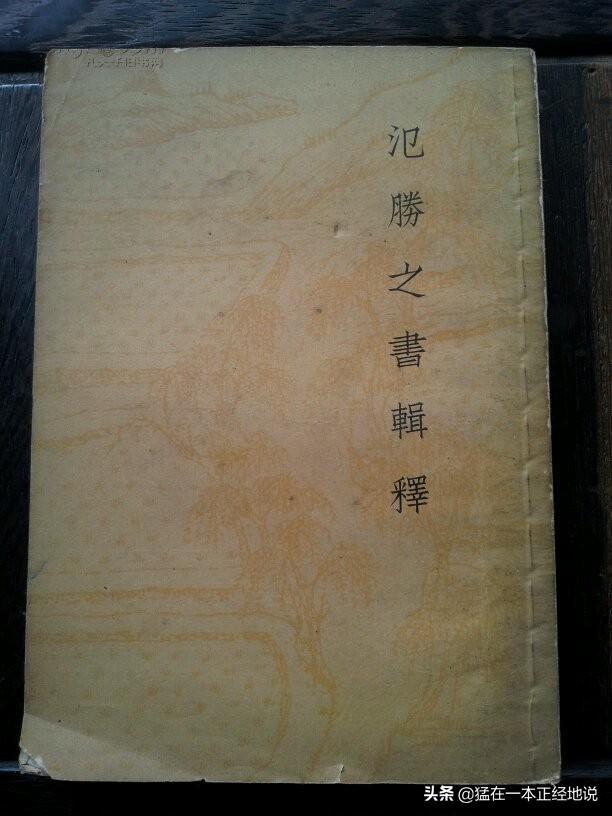 氾勝之書輯釋
头条 @猛在一本正经地说